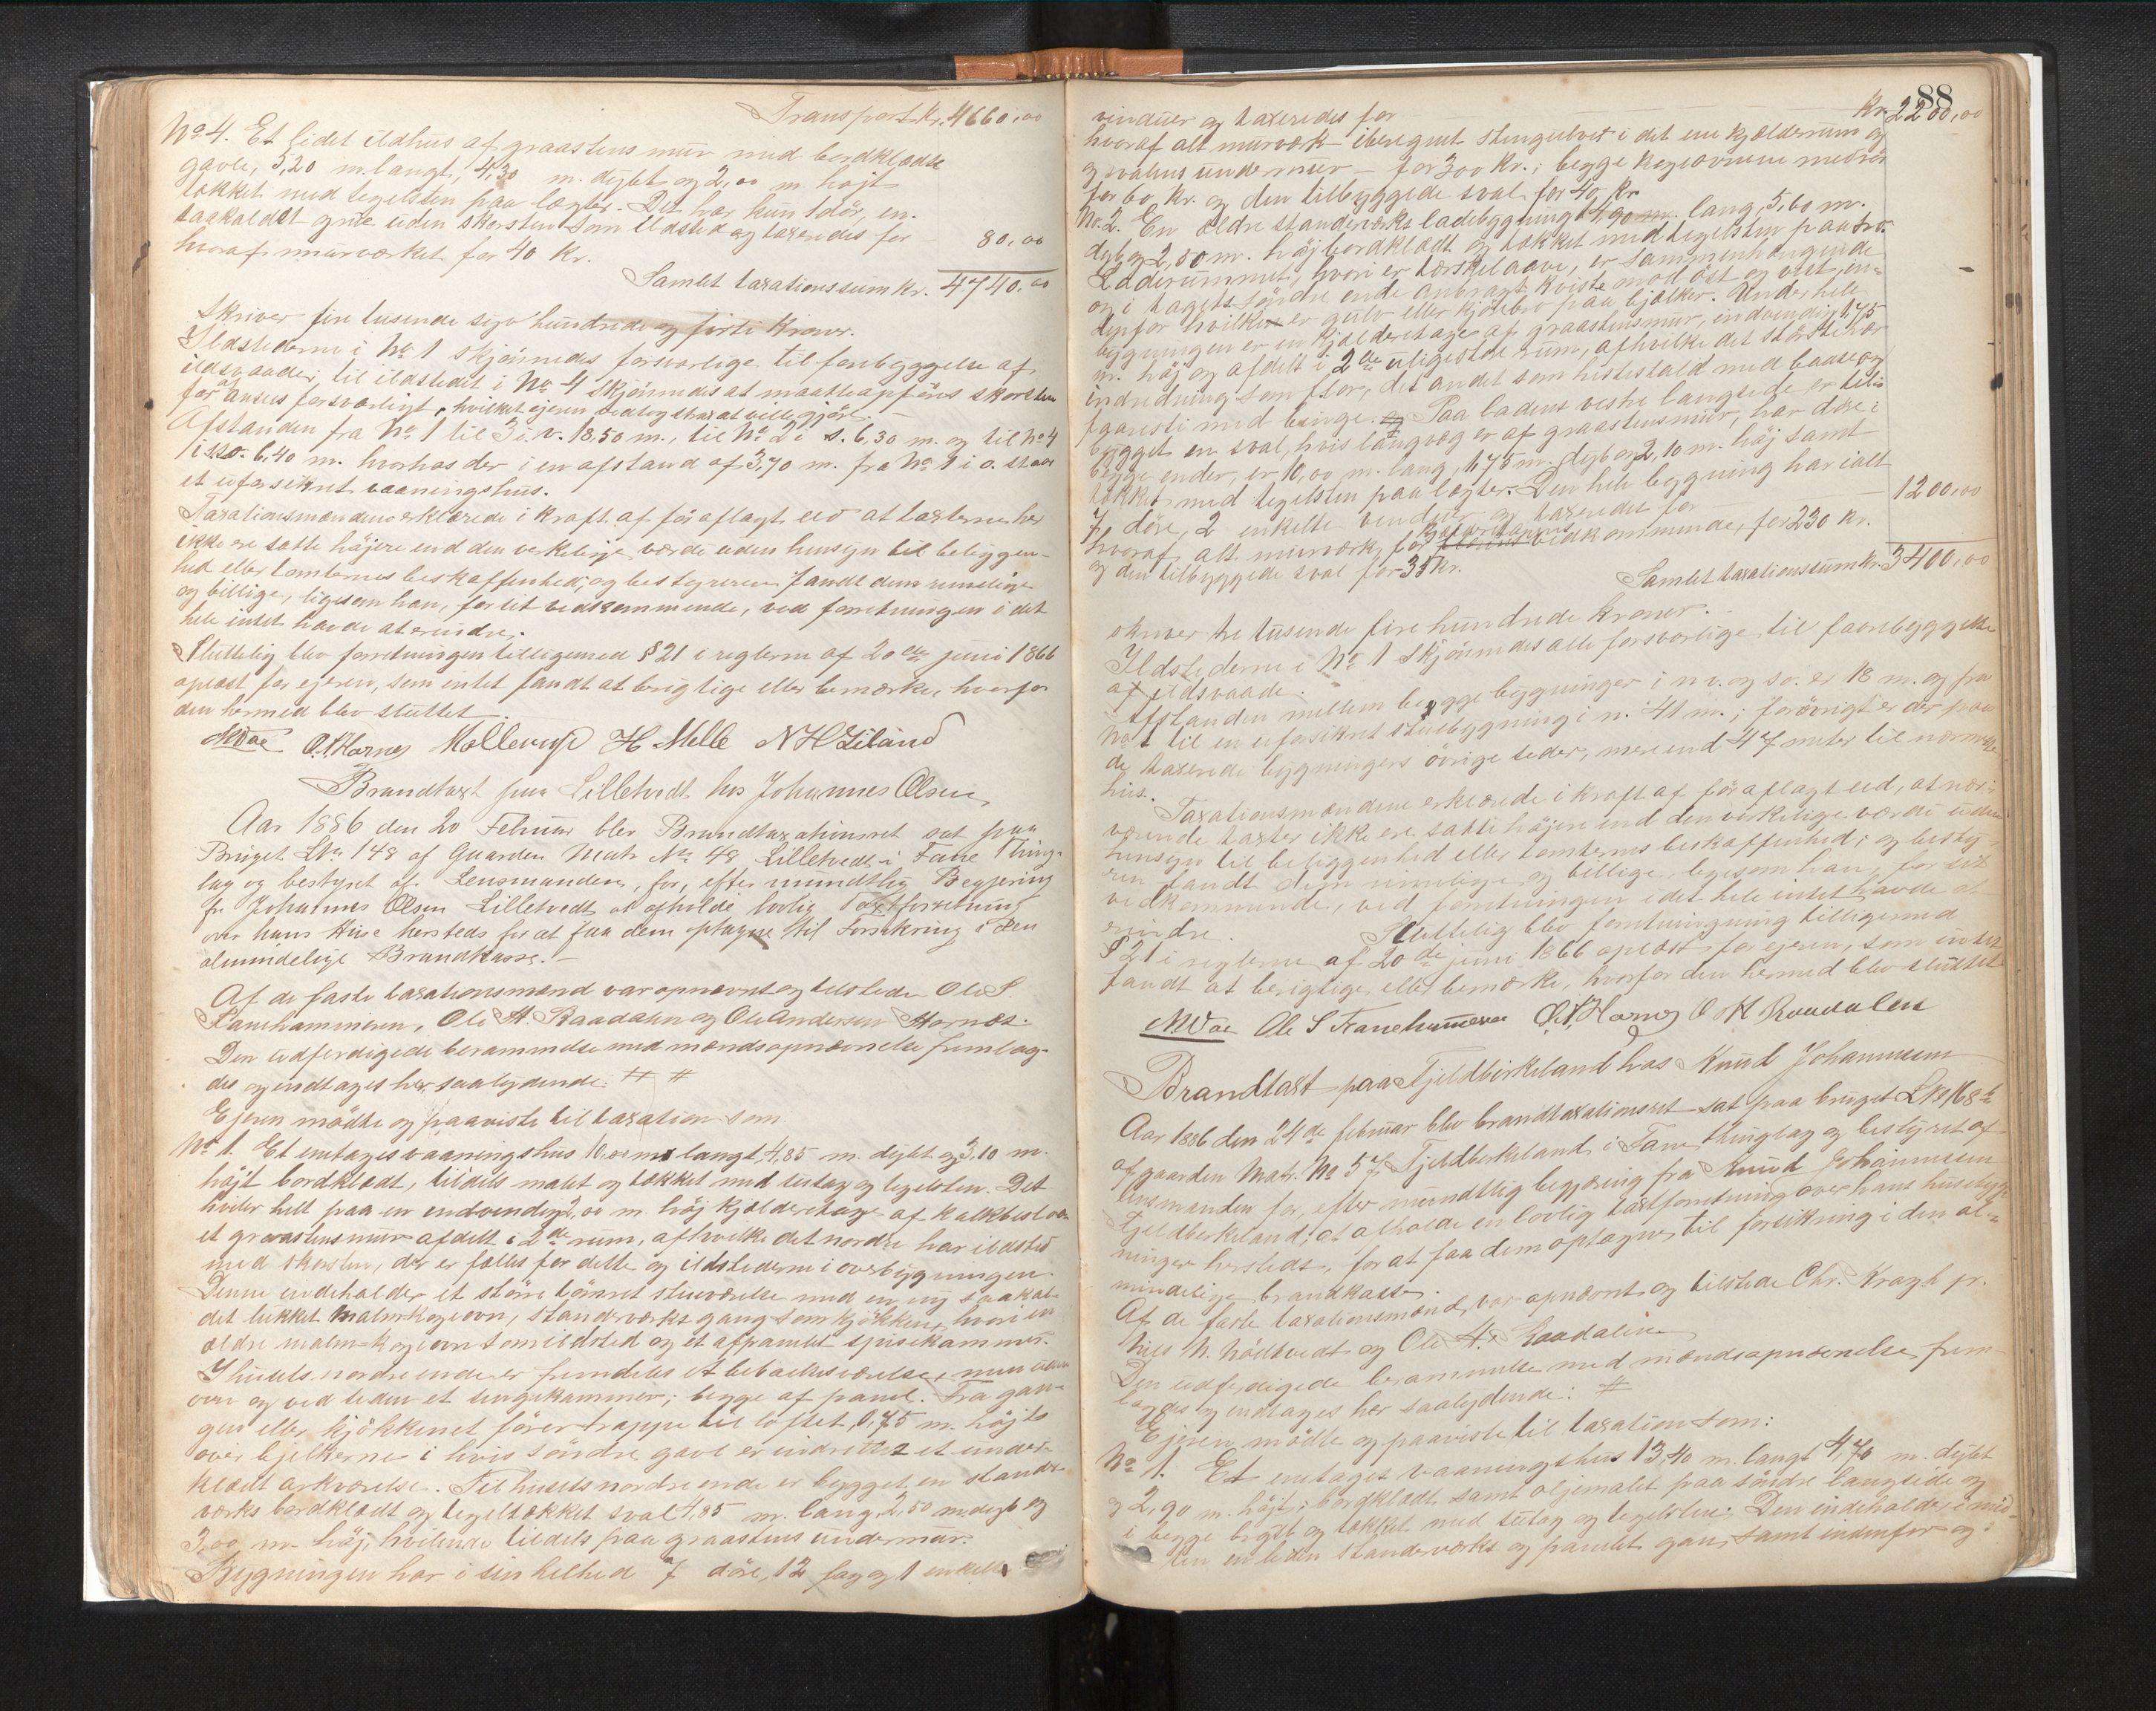 Transport kr. 4660,00
No 4. Et lidet ildhus af graastens mur med bordklædte
gavle, 5,20 m. langt, 4,30 m. dybt og 2,00 m højt
tækket med tegelsten paa lægter. Det har kun 1 dör, en
saakaldet grue uden skorsten som ildsted og taxeredes for 80,00
hvoraf murværket for 40 kr.
Samlet taxationssum kr. 4740,00
Skriver fire tusende syv hundrede og förti Kroner.
Ildstederne i No 1 skjönnedes forsvarlige til forebyggelse af
ildsvaade; til ildstedet i No 4 skjönnedes at maatte opföres skorsten
for at ansees forsvarligt, hvilket ejeren strax at ville gjöre.
Afstanden fra No 1 til 3 i v. 18,50 m., til No 2 i s. 6,30 m. og til No 4
i sso. 6,40 m. hvorhos der i en afstand af 3,70 m. fra No 1 i o. staar
et uforsikret vaaningshus.
Taxationsmændene erklærede i kraft af för aflagt eed at taxterne her
ikke ere satte höjere end den verkelige værdi uden hensyn til beliggen-
hed eller tomternes beskaffenhed; og bestyreren fandt dem rimelige
og billige, ligesom han, for sit vedkommende, ved forretningen i det
hele intet havde at erindre.
Sluttelig blev forretningen tilligemed § 21 i reglerne af 20de juni 1866
oplæst for ejeren, som intet fandt at berigtige eller bemærke, hvorfor
den hermed blev sluttet.
O. A. Hornes Mollerup H. Melle N H Liland
Brandtaxt paa Lilletvedt hos Johannes Olsen
Aar 1886 den 20 Februar blev Brandtaxationsret sat paa
Bruget LNo 148 af Gaarden Matr. No 48 Lilletvedt i Fane Thing-
lag og bestyret af Lensmanden, for, efter mundtlig Begjering
fra Johannes Olsen Lilletvedt at afholde lovlig Taxtforretning
over hans Huse hersteds for at faa dem optagne til Forsikring i den
almindelige Brandkasse.
Af de faste taxationsmænd var opnævnt og tilstede Ole S.
Fanehammeren, Ole H. Raadalen og Ole Andersen Hornæs.
Den udferdigede berammelse med mændsopnævnelse fremlag-
des og indtages her saalydende: # #
Ejeren mödte og paaviste til taxation som:
No 1. Et enetages vaaningshus 10,00 m langt, 4,85 m. dybt og 3,10 m.
höjt bordklædt, tildels malet og tækket med sutag og tegelsten. Det
hviler helt paa en indvendig 2,00 m. höj kjælderetage af kalkbestrøg-
et graastensmur afdelt i 2de rum, afhvilke det nordre har ildsted
med skorsten, der er fælles for dette og ildstederne i overbygningen.
Denne indeholder et större tömret stueværelse med en ny saakal-
det lukket malmkogeovn, standerværks gang som kjökken, hvori en
ældre malm-kogeovn som ildsted og et afpanelet spisekammer.
I husets nordre ende er fremdeles et beboelsesværelse, men uden
ovn og ved siden et sengekammer; begge af panel. Fra gan-
gen eller kjökkenet förer trappe til loftet, 0,75 m. höjt
over bjelkerne i hvis söndre gavl er indrettet et under-
klædt arkværelse. Til husets nordre ende er bygget en stander-
værks bordklædt og tegeltækket sval 4,85 m. lang, 2,50 m. dyb og
3,00 m. höj, hvilende tildels paa graastens undermur.
Bygningen har i sin helhed 7 döre, 12 fag og 1 enkelt
88
vinduer og taxeredes for kr. 2200,00
hvoraf alt murværk iberegnet stengulvet i det ene kjælderum og
svalens undermur - for 300 kr.; begge kogeovnene med rör
for 60 kr. og den tilbyggede sval for 40 kr.
No. 2. En ældre standerværks ladebygning 14,90 m. lang, 5,60 m.
dyb og 2,50 m. höj bordklædt og tækket med tegelsten paa tro.
Laderummet, hvori er tærskelaave, er sammenhængende
og i tagets söndre ende anbragt kviste mod öst og vest, in-
denfor hvilken er gulv eller kjörebro paa bjælker. Under hele
bygningen er en kjælderetage af graastensmur, indvendig 1,75
m. höj og afdelt i 2de uligestore rum, afhvilke det störste har
indredning som flor, det andet som hestestald med baase og
faaresti med binge. Paa ladens vestre langside er til-
bygget en sval, hvis langvæg er af graastensmur, har döre i
begge ender, er 10,00 m. lang, 1,75 m. dyb og 2,10 m. höj samt
tækket med tegelsten paa lægter. Den hele bygning har ialt
7 döre, 2 enkelte vinduer og taxeredes for 1200,00
hvoraf alt murværk, for kjælderetagens vedkommende, for 230 kr.
og den tilbyggede sval for 35 kr.
Samlet taxationssum kr. 3400,00
skriver tre tusende fire hundrede kroner.
Ildstederne i No 1 skjönnedes alle forsvarlige til forebyggelse
af ildsvaade.
Afstanden mellem begge bygninger i nv. og sö. er 18 m. og fra
No 1 til en uforsikret stuebygning i n. 41 m.; forövrigt er der paa
de taxerede bygningers övrige sider, mere end 47 meter til nærmeste
hus.
Taxationsmændene erklærede i kraft af för aflagt eed, at nær-
værende taxter ikke ere satte höjere end den virkelige værdi uden
hensyn til beliggenhed eller tomternes beskaffenhed; og besty-
ren fandt dem rimelige og billige, ligesom han, for sit
vedkommende, ved forretningen i det hele intet havde at
erindre. Sluttelig blev forretningning tilligemed
§ 21 i reglerne af 20de juni 1866 oplæst for ejeren, som intet
fandt at berigtige eller bemærke, hvorfor den hermed blev sluttet
Ole S Fanehammeren O. A. Hornes O H Raadalen
Brandtaxt paa Fjeldbirkeland hos Knud Johannesen
Aar 1886 den 24de februar blev brandtaxationsret sat paa bruget LNo 168
af gaarden Matr. No 57 Fjeldbirkeland i Fane thinglag og bestyret af
lensmanden for, efter mundtlig begjæring fra Knud Johannesen
Fjeldbirkeland, at afholde en lovlig taxtforretning over hans husebyg-
ninger hersteds, for at faa dem optagne til forsikring i den al-
mindelige brandkasse.
Af de faste taxationsmænd var opnævnt og tilstede Chr. Kragh jr.
Nils N. Hödtvedt og Ole H. Raadalen
Den udferdigede berammelse med mændsopnævnelse frem-
lagdes og indtages her saalydende: #
Ejeren mödte og paaviste til taxation som:
No 1. Et enetages vaaningshus 13,40 m. langt 4,70 m. dybt
og 2,90 m. höjt, bordklædt samt oljemalet paa söndre langside og
i begge bryst og tækket med sutag og tegelsten. Den indeholder i mid-
ten en liden standerværks og panelet gang samt indenfor og